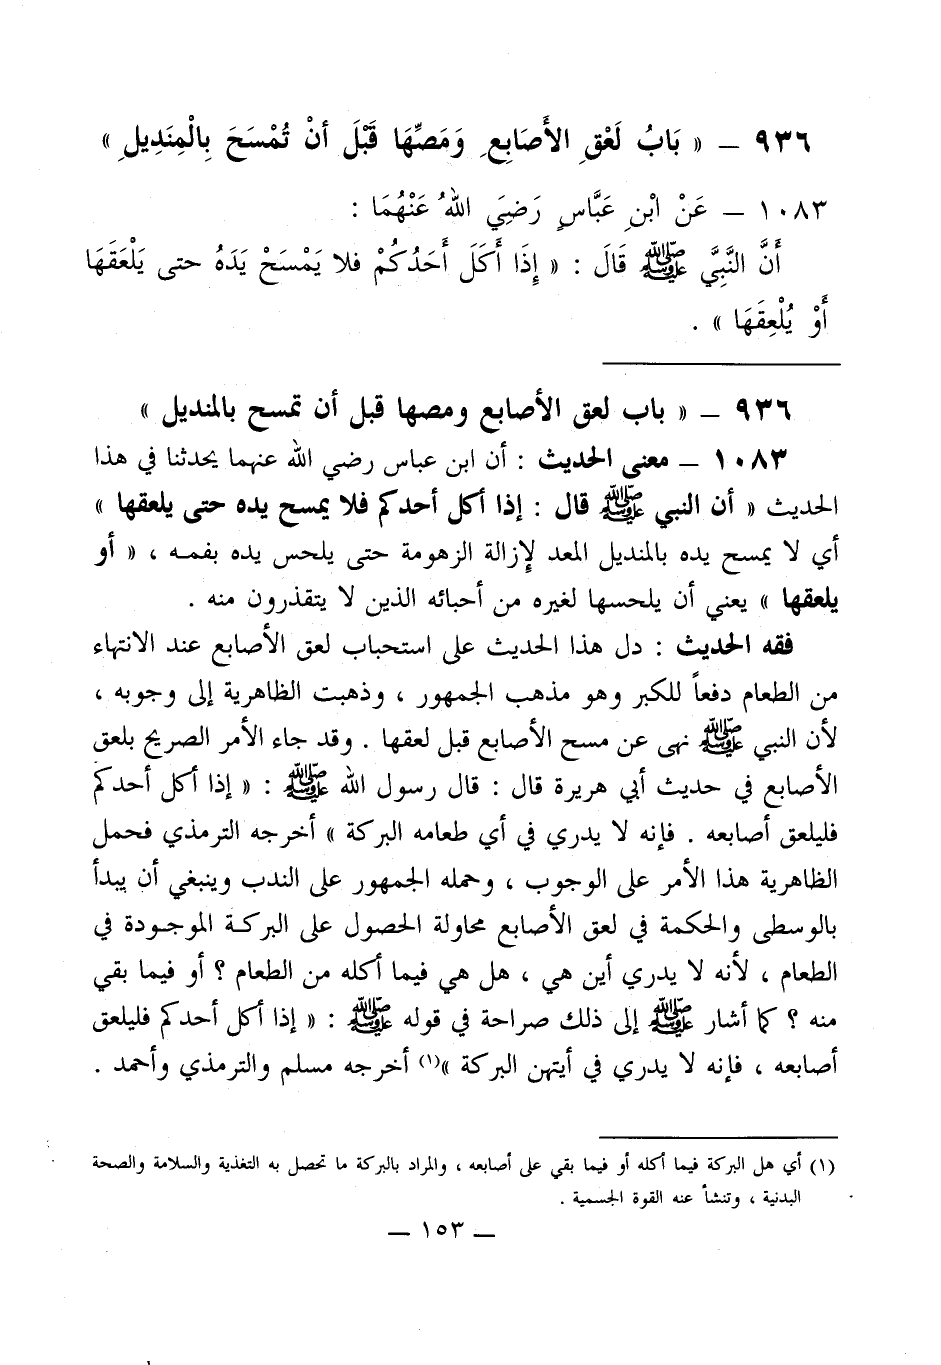 ٩٣٦ – « بَابُ لَعْقِ الأَصَابِعِ وَمَصِّهَا قَبْلَ أنْ تُمْسَحَ بِالْمِنَدِيلِ »
١٠٨٣ – عَنْ ابْنِ عَبَّاسٍ رَضِيَ اللهُ عَنْهُمَا :
أَنَّ النَّبِيَّ ﷺ قَالَ : « إِذَا أَكَلَ أَحَدُكُمْ فلا يَمْسَحْ يَدَهُ حتى يَلْعَقَهَا
أَوْ يُلْعِقَهَا » .
٩٣٦ – « باب لعق الأصابع ومصها قبل أن تمسح بالمنديل »
١٠٨٣ – معنى الحديث : أن ابن عباس رضي الله عنهما يحدثنا في هذا
الحديث « أن النبي ﷺ قال : إذا أكل أحدكم فلا يمسح يده حتى يلعقها »
أي لا يمسح يده بالمنديل المعد لإزالة الزهومة حتى يلحس يده بفمه ، « أو
يلعقها » يعني أن يلحسها لغيره من أحبائه الذين لا يتقذرون منه .
فقه الحديث : دل هذا الحديث على استحباب لعق الأصابع عند الانتهاء
من الطعام دفعاً للكبر وهو مذهب الجمهور ، وذهبت الظاهرية إلى وجوبه ،
لأن النبي ﷺ نهى عن مسح الأصابع قبل لعقها . وقد جاء الأمر الصريح بلعق
الأصابع في حديث أبي هريرة قال : قال رسول الله ﷺ : « إذا أكل أحدكم
فليلعق أصابعه . فإنه لا يدري في أي طعامه البركة » أخرجه الترمذي فحمل
الظاهرية هذا الأمر على الوجوب ، وحمله الجمهور على الندب وينبغي أن يبدأ
بالوسطى والحكمة في لعق الأصابع محاولة الحصول على البركة الموجودة في
الطعام ، لأنه لا يدري أين هي ، هل هي فيما أكله من الطعام ؟ أو فيما بقي
منه ؟ كما أشار ﷺ إلى ذلك صراحة في قوله ﷺ : « إذا أكل أحدكم فليلعق
أصابعه ، فإنه لا يدري في أيتهن البركة »(١) أخرجه مسلم والترمذي وأحمد .
(١) أي هل البركة فيما أكله أو فيما بقي على أصابعه ، والمراد بالبركة ما تحصل به التغذية والسلامة والصحة
البدنية ، وتنشأ عنه القوة الجسمية .
– ١٥٣ –